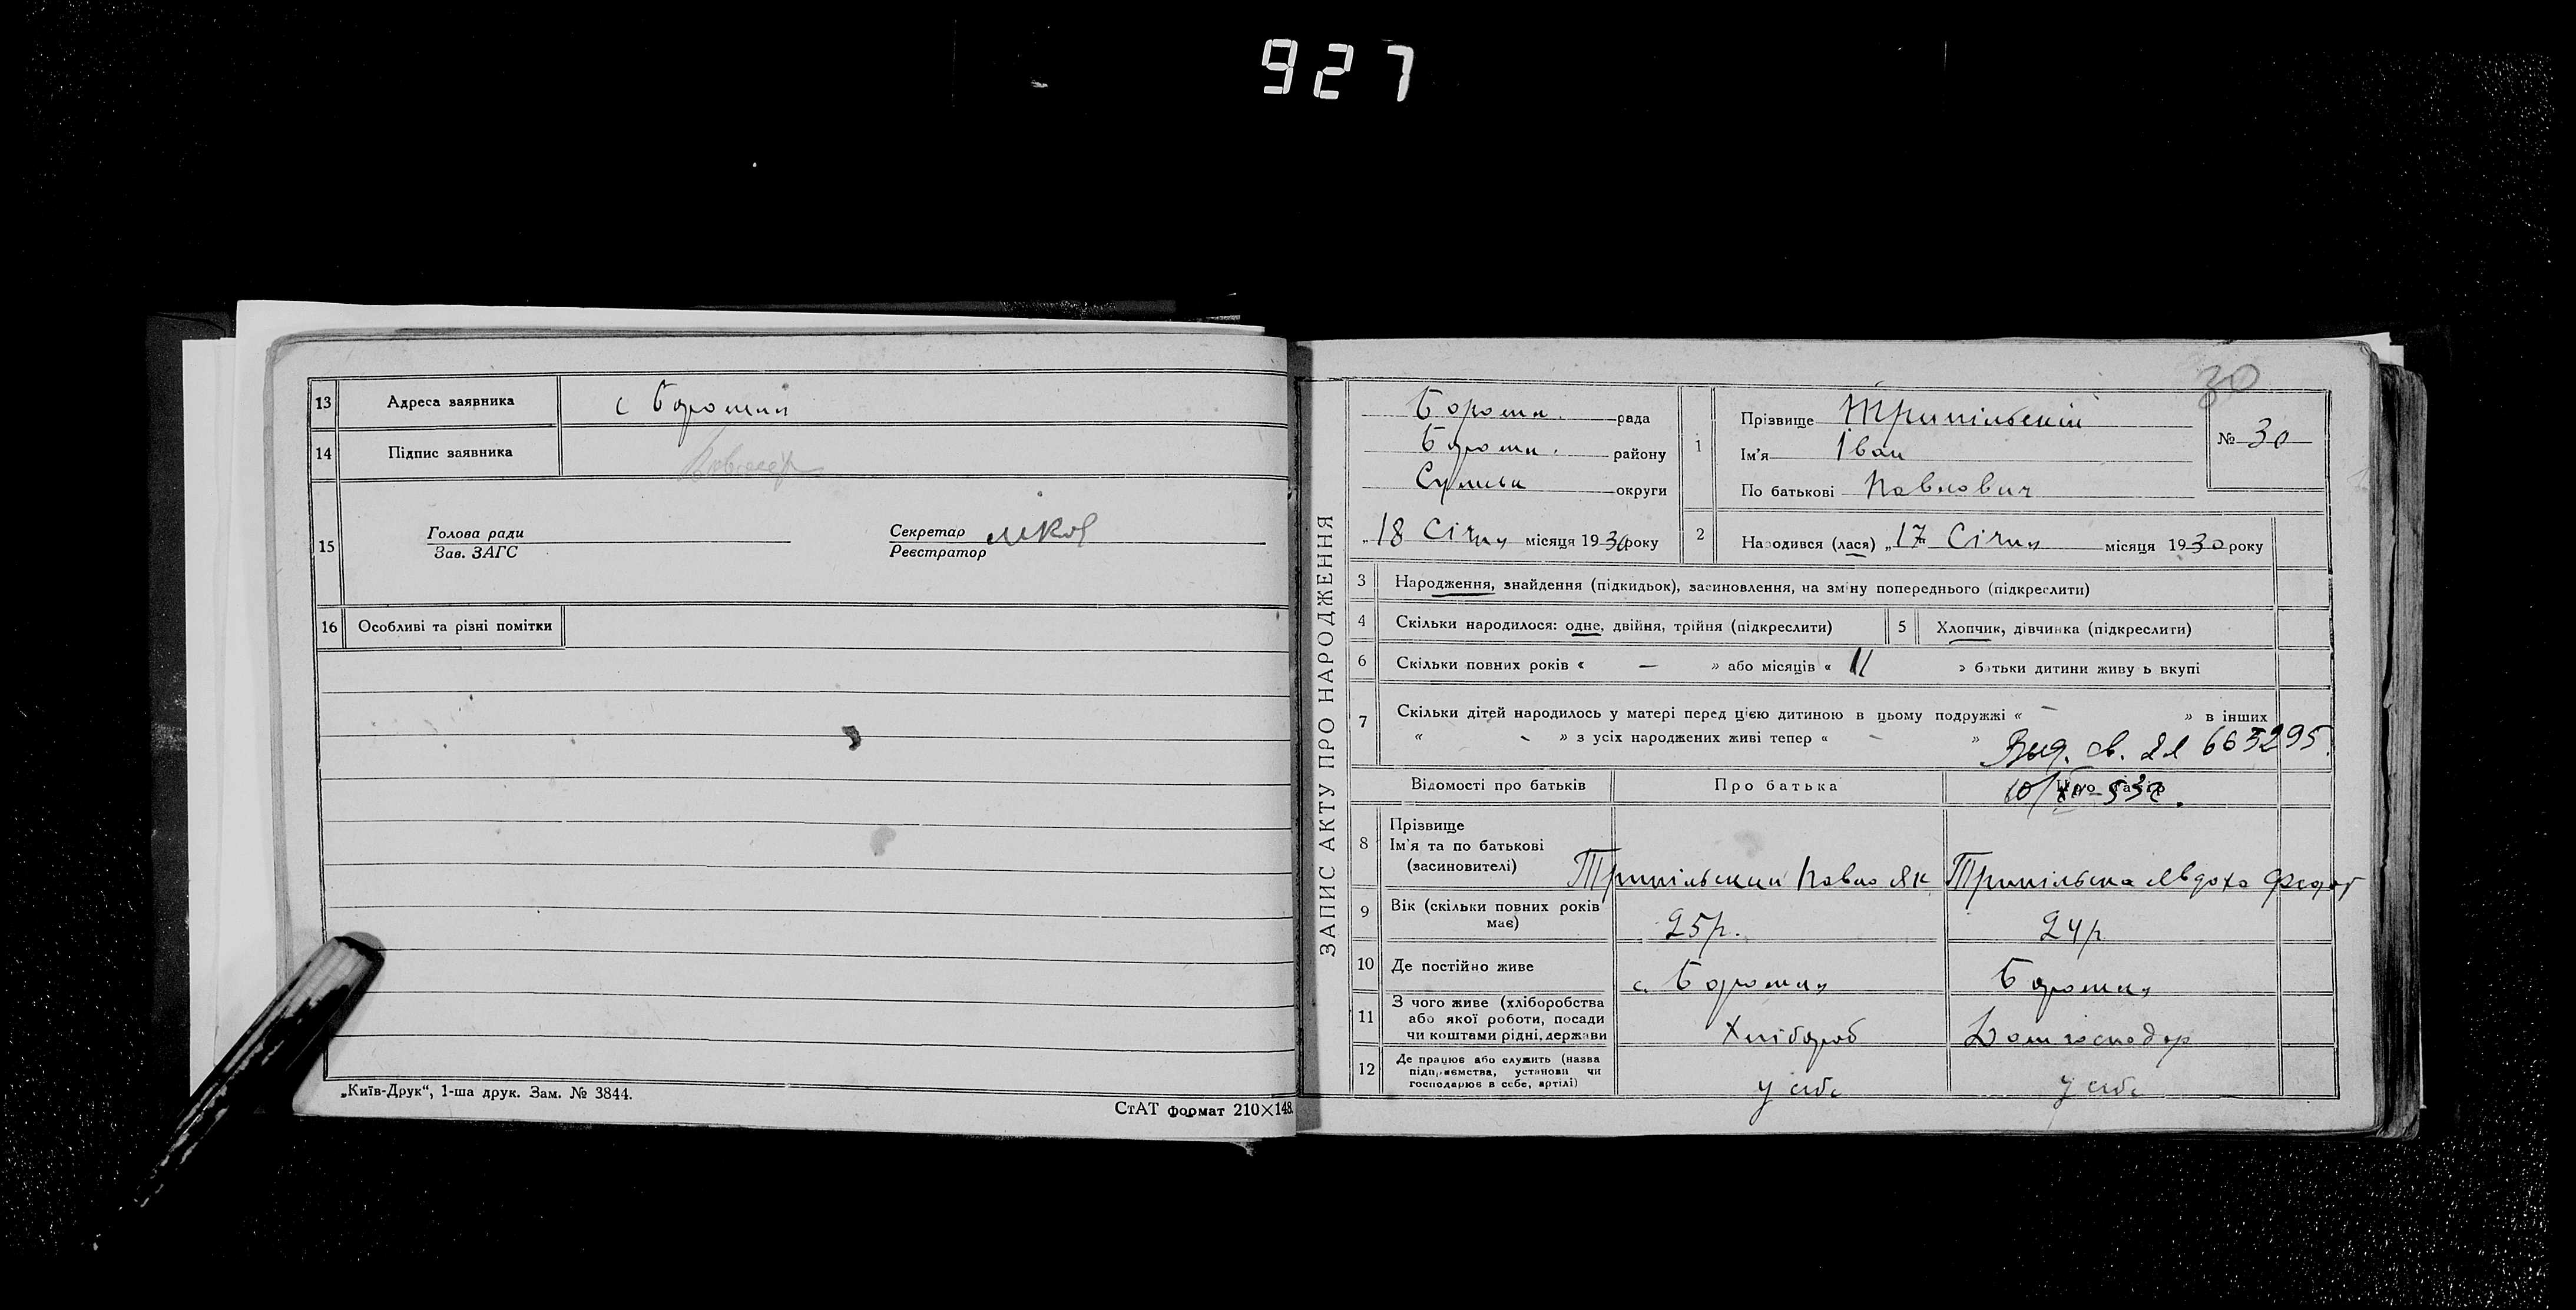 927
13 Адреса заявника с Боромля
14 Підпис заявника
15 Голова ради
Зав. ЗАГС
Секретар
Реєстратор
16 Особливі та різні помітки
„Київ-Друк“, 1-ша друк. Зам. № 3844.
СтАТ формат 210×148.
ЗАПИС АКТУ ПРО НАРОДЖЕННЯ
30
Боромл. рада
Боромл. району
Сумськ округи
„18 Січня місяця 1930 року
1 Прізвище Трипільский
Ім'я Іван
По батькові Павлович
№ 30
2 Народився (лася) „17 Січня місяця 1930 року
3 Народження, знайдення (підкидьок), засиновлення, на зміну попереднього (підкреслити)
4 Скільки народилося: одне, двійня, трійня (підкреслити)
5 Хлопчик, дівчинка (підкреслити)
6 Скільки повних років « — » або місяців « 11 » батьки дитини живуть вкупі
7 Скільки дітей народилось у матері перед цією дитиною в цьому подружжі « — » в інших
« - » з усіх народжених живі тепер « — »
Выд. св. 665295.
Відомості про батьків Про батька Про матір
8 Прізвище
Ім'я та по батькові
(засиновителі)
Трипільский Павло Як Трипільська Явдоха Федот
9 Вік (скільки повних років має) 25р. 24р
10 Де постійно живе с. Боромля Боромля
11 З чого живе (хліборобства
або якої роботи, посади
чи коштами рідні, держави
Хлібороб Домгосподар
12 Де працює або служить (назва
підприємства, установи чи
господарює в себе, артілі)
у себе у себе